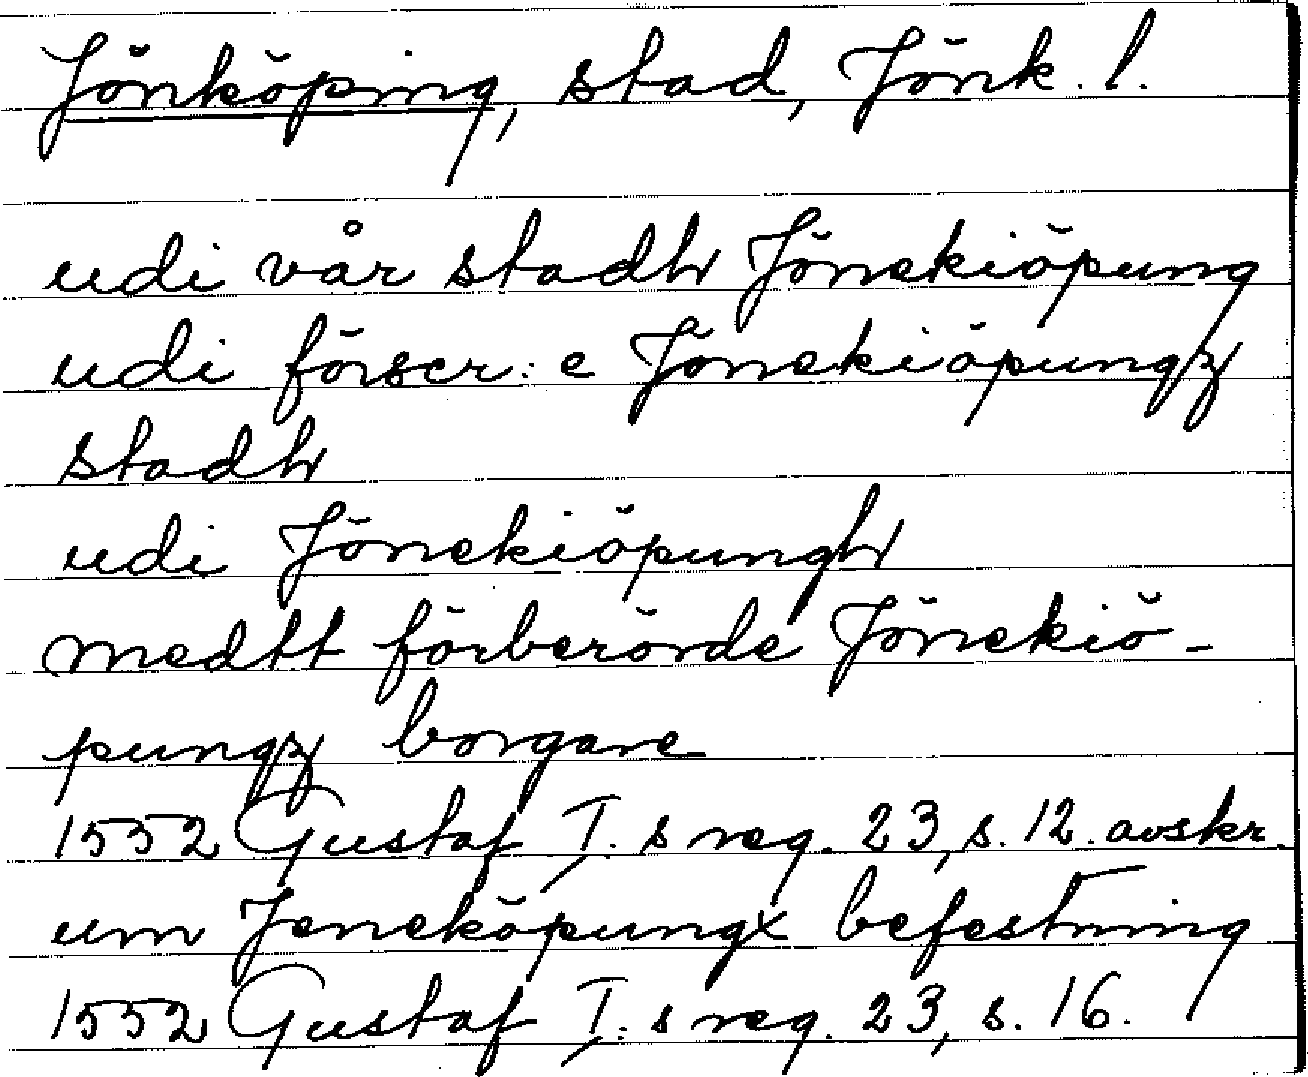 Jönköping, stad, Jönk. l.
udi vår stadh Jönekiöpung
udi förscr:e Jönekiöpungz
stadh
udi Jönekiöpungh
medtt förberörde Jönekiö-
pungz borgare
1552 Gustaf I:s reg. 23, s. 12. avskr.
um Jeneköpungx befestning
1552 Gustaf I:s reg. 23, s. 16.